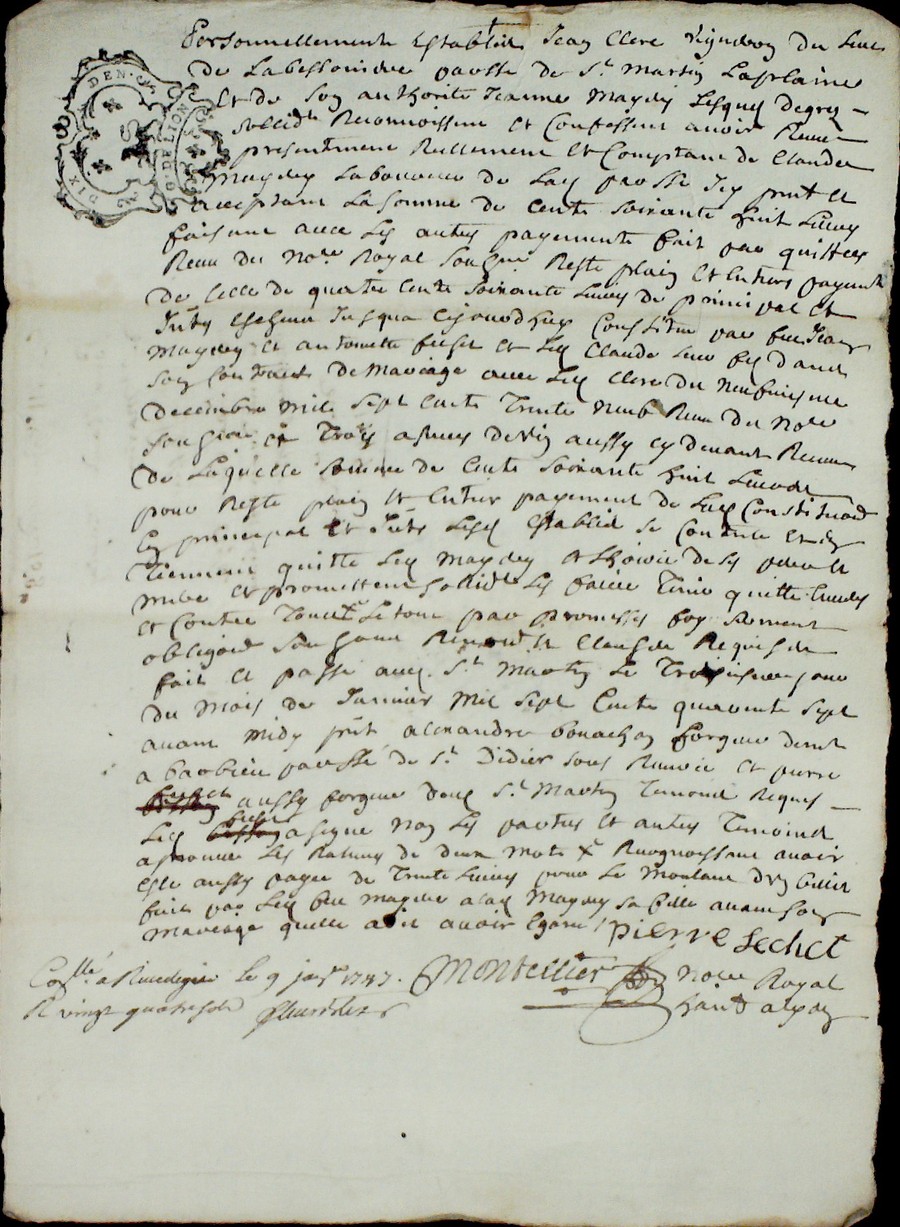 DIX DEN. G. DE LION
Personnellement Establis Jean Clere vigneron du lieu
de Labessoniere parosse de St Martin Laplaine
et de son authorite Jeanne Maydey Lesquels de grez
sollidt Reconnoissent et Confessent avoir Receu
presentement Reellement et Comptant de Claude
Maydey Laboureur de Lad parosse Icy prnt et
acceptant La somme de Cents soixante huit Livres
faisant avec Les autres payements fait par quittces
Receu du nore Royal soussne Reste plain et Entiers payemt
de Celle de quatre Cents soixante Livres de principal et
Jusqua Cejourdhuy Constitue par feu Jean
Maydey et antoinette et Led Claude Leur fils dans
son Contract de Mariage avec Led Clere du neufviesme
decembre mil sept Cents Trente neuf Receu du nore
soussne et Trois asnees de vin aussy cy devant Receus
de Laquelle somme de Cents soixante huit Livres
pour Reste plain et Entier payement de Lad Constitution
En principal et Lesd Establis se Contente et En
Tiennent quitte Led Maydey et Lhoirie de ses pere et
mere et promettent sollidt Les faire Tenir quitte Envers
et Contre Tous Le tout par promesses foy serment
obligons soumons Renons et Clauses Requises
fait et passe aud. St Martin Le Troisiesme jour
du Mois de Janvier Mil sept Cents quarante sept
avant Midy prnt alexandre bonachon forgeur demt
a barbieu parosse de St Didier sous Riverie et pierre
sechet aussy forgeur dud St Martin Temoins Requis
Led sechet a signe non Les parties et autres Temoins
aprouve Les Ratures de deux mots X Recognoissant avoir
Este aussy payee de Trente Livres pour Le Montant d'un billet
fait par Led feu Maydey a Lad Maydey sa fille avant son
Mariage quelle a dit avoir Egaré / pierre sechet
Conllé a Rivedegier Le 9 janr 1747. Montellier nore Royal
R vingt quatre sols